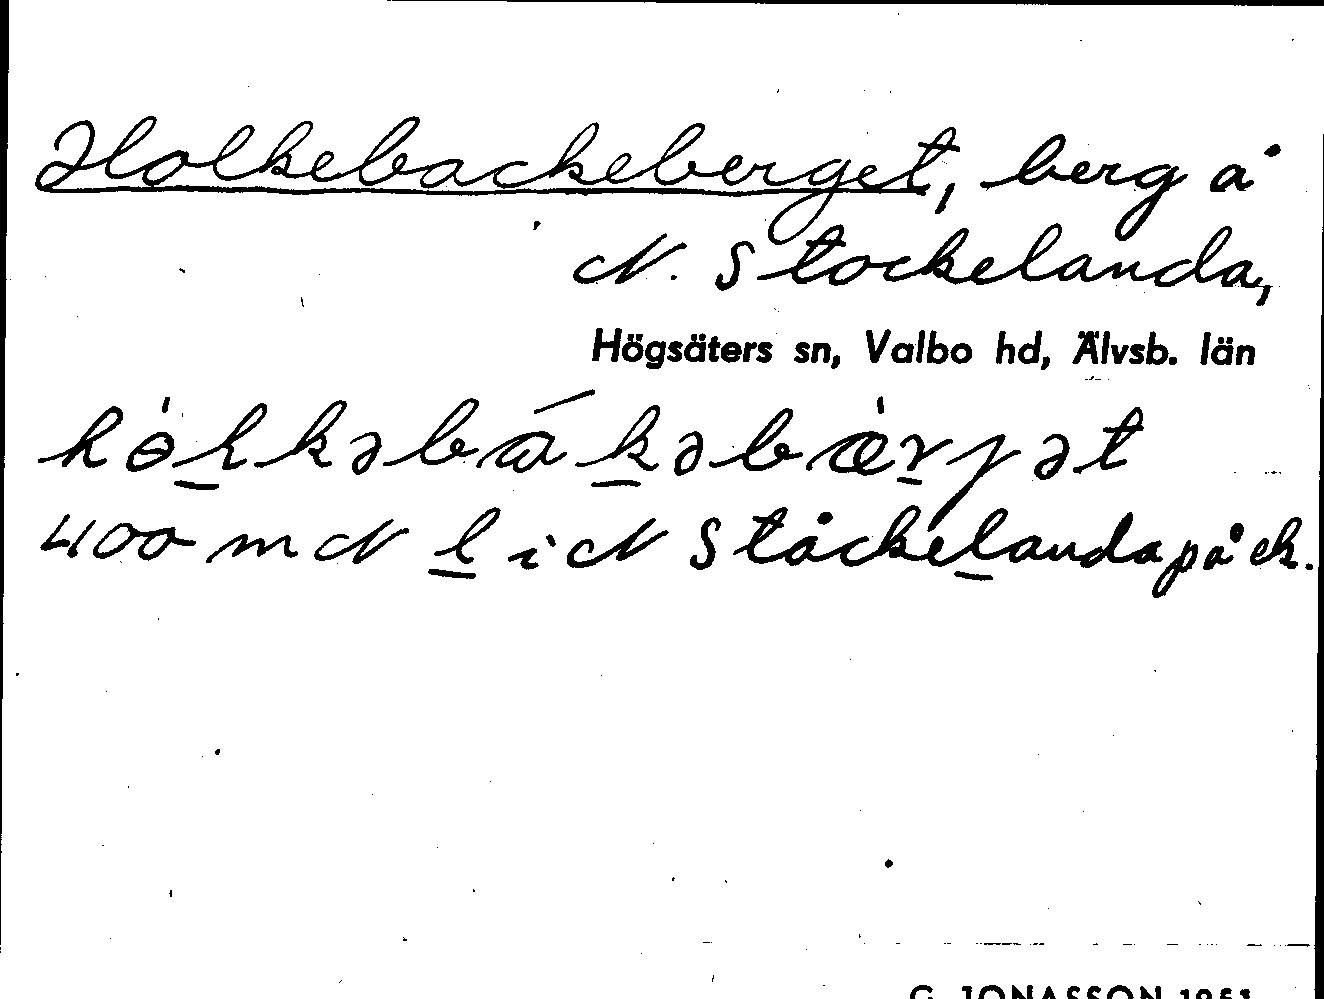 Holkebackeberget, berg å
N. Stockelanda,
Högsäters sn, Valbo hd, Älvsb. län
400 m N l i N Ståckelanda på ek.
G. JONASSON 1951